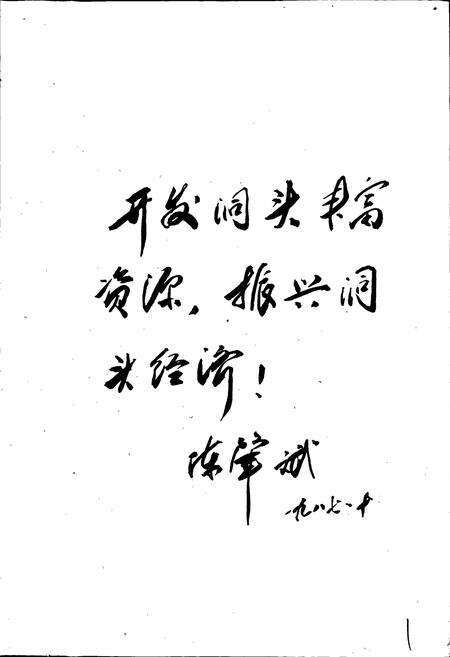 开发洞头丰富
资源，振兴洞
头经济！
陈肇斌
一九八七·十